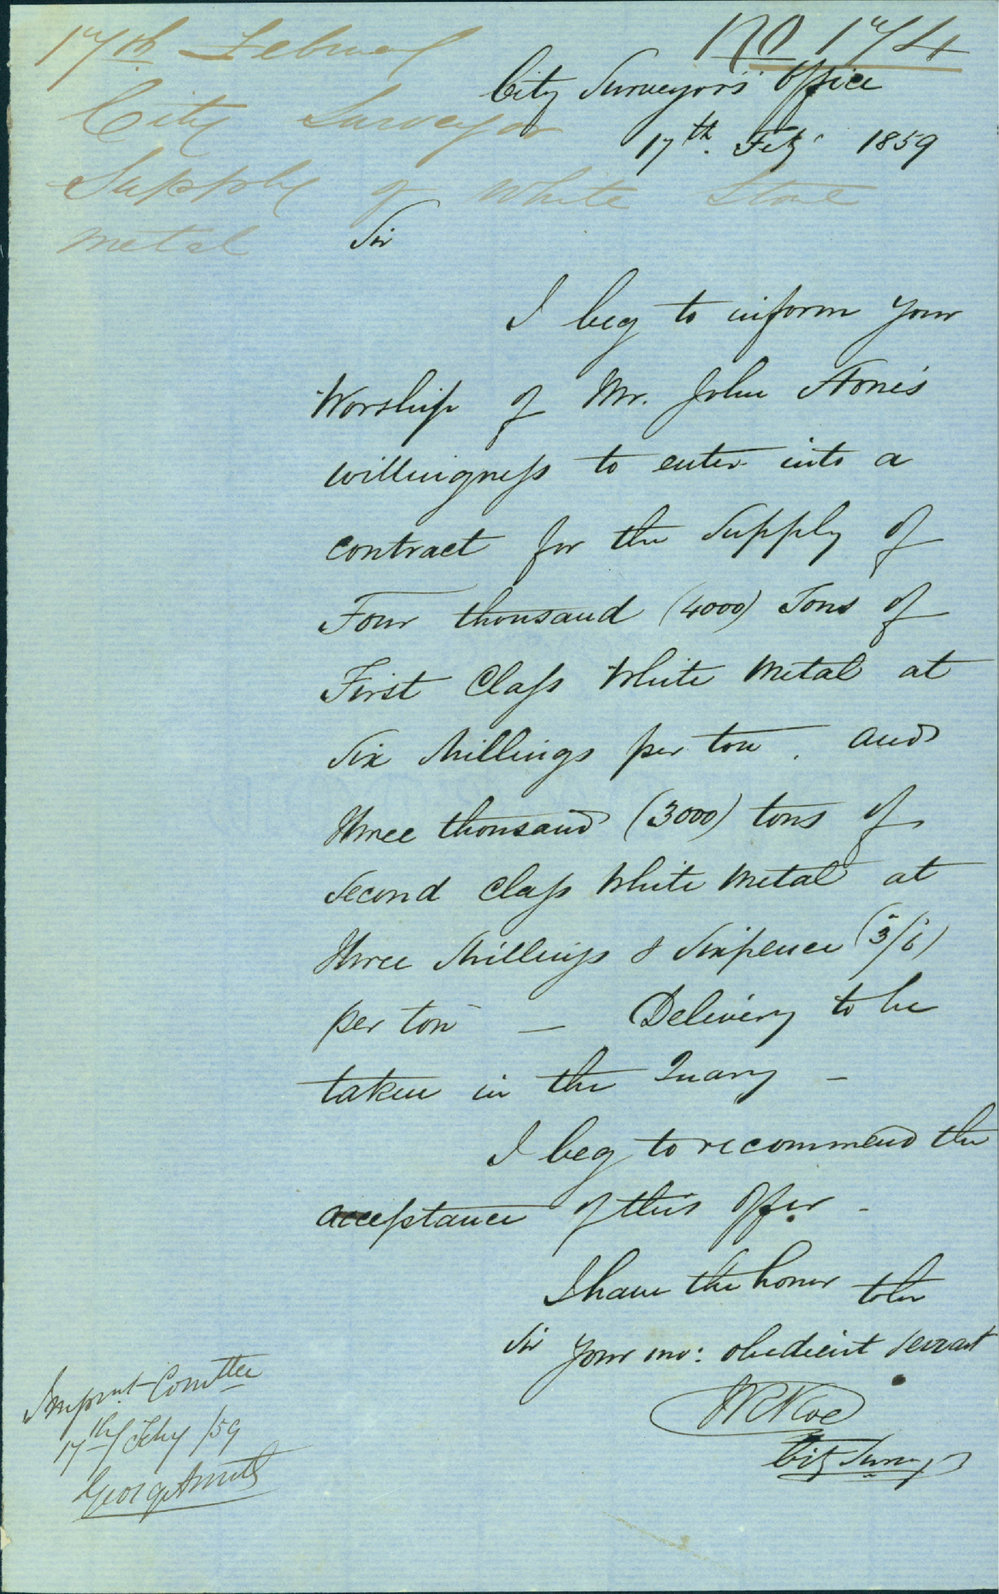 17th February
City Surveyor
Supply of White Stone
metal
No 174
City Surveyors Office
17th Feby 1859
Sir
I beg to inform your
Worship of Mr. John Stone's
willingness to enter into a
contract for the Supply of
Four thousand (4000) Tons of
First Class White Metal at
Six Shillings per ton, and
three thousand (3000) tons of
Second Class White Metal at
three Shillings & Sixpence (3/6)
per ton — Delivery to be
taken in the Quarry —
I beg to recommend the
acceptance of this Offer –
I have the honor to be
Sir Your mo: obedient Servant
City Surveyor
Impvmt Comttee
17th Feby /59
George Smith